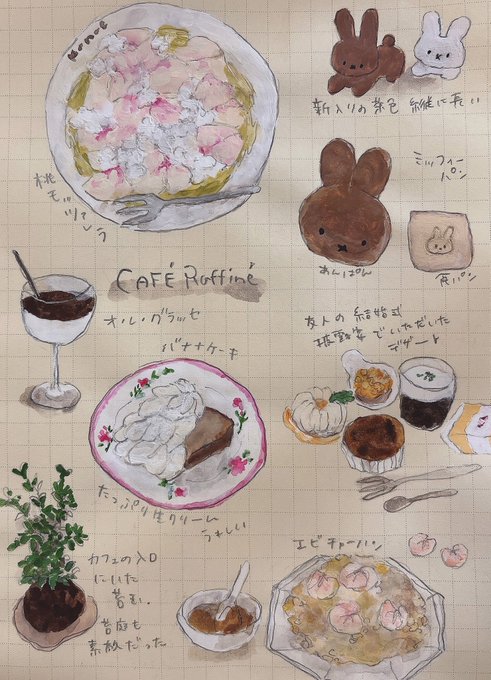 Monoe
桃
モッツァ
レラ
新入りの茶色 縦に長い
ミッフィー
パン
あんぱん
食パン
CAFÉ Raffiné
オ・ル・グラッセ
バナナケーキ
たっぷり生クリーム
うれしい
友人の結婚式
披露宴でいただいた
デザート
カフェの入口
にいた
苔玉。
苔庭も
素敵だった
エビチャーハン